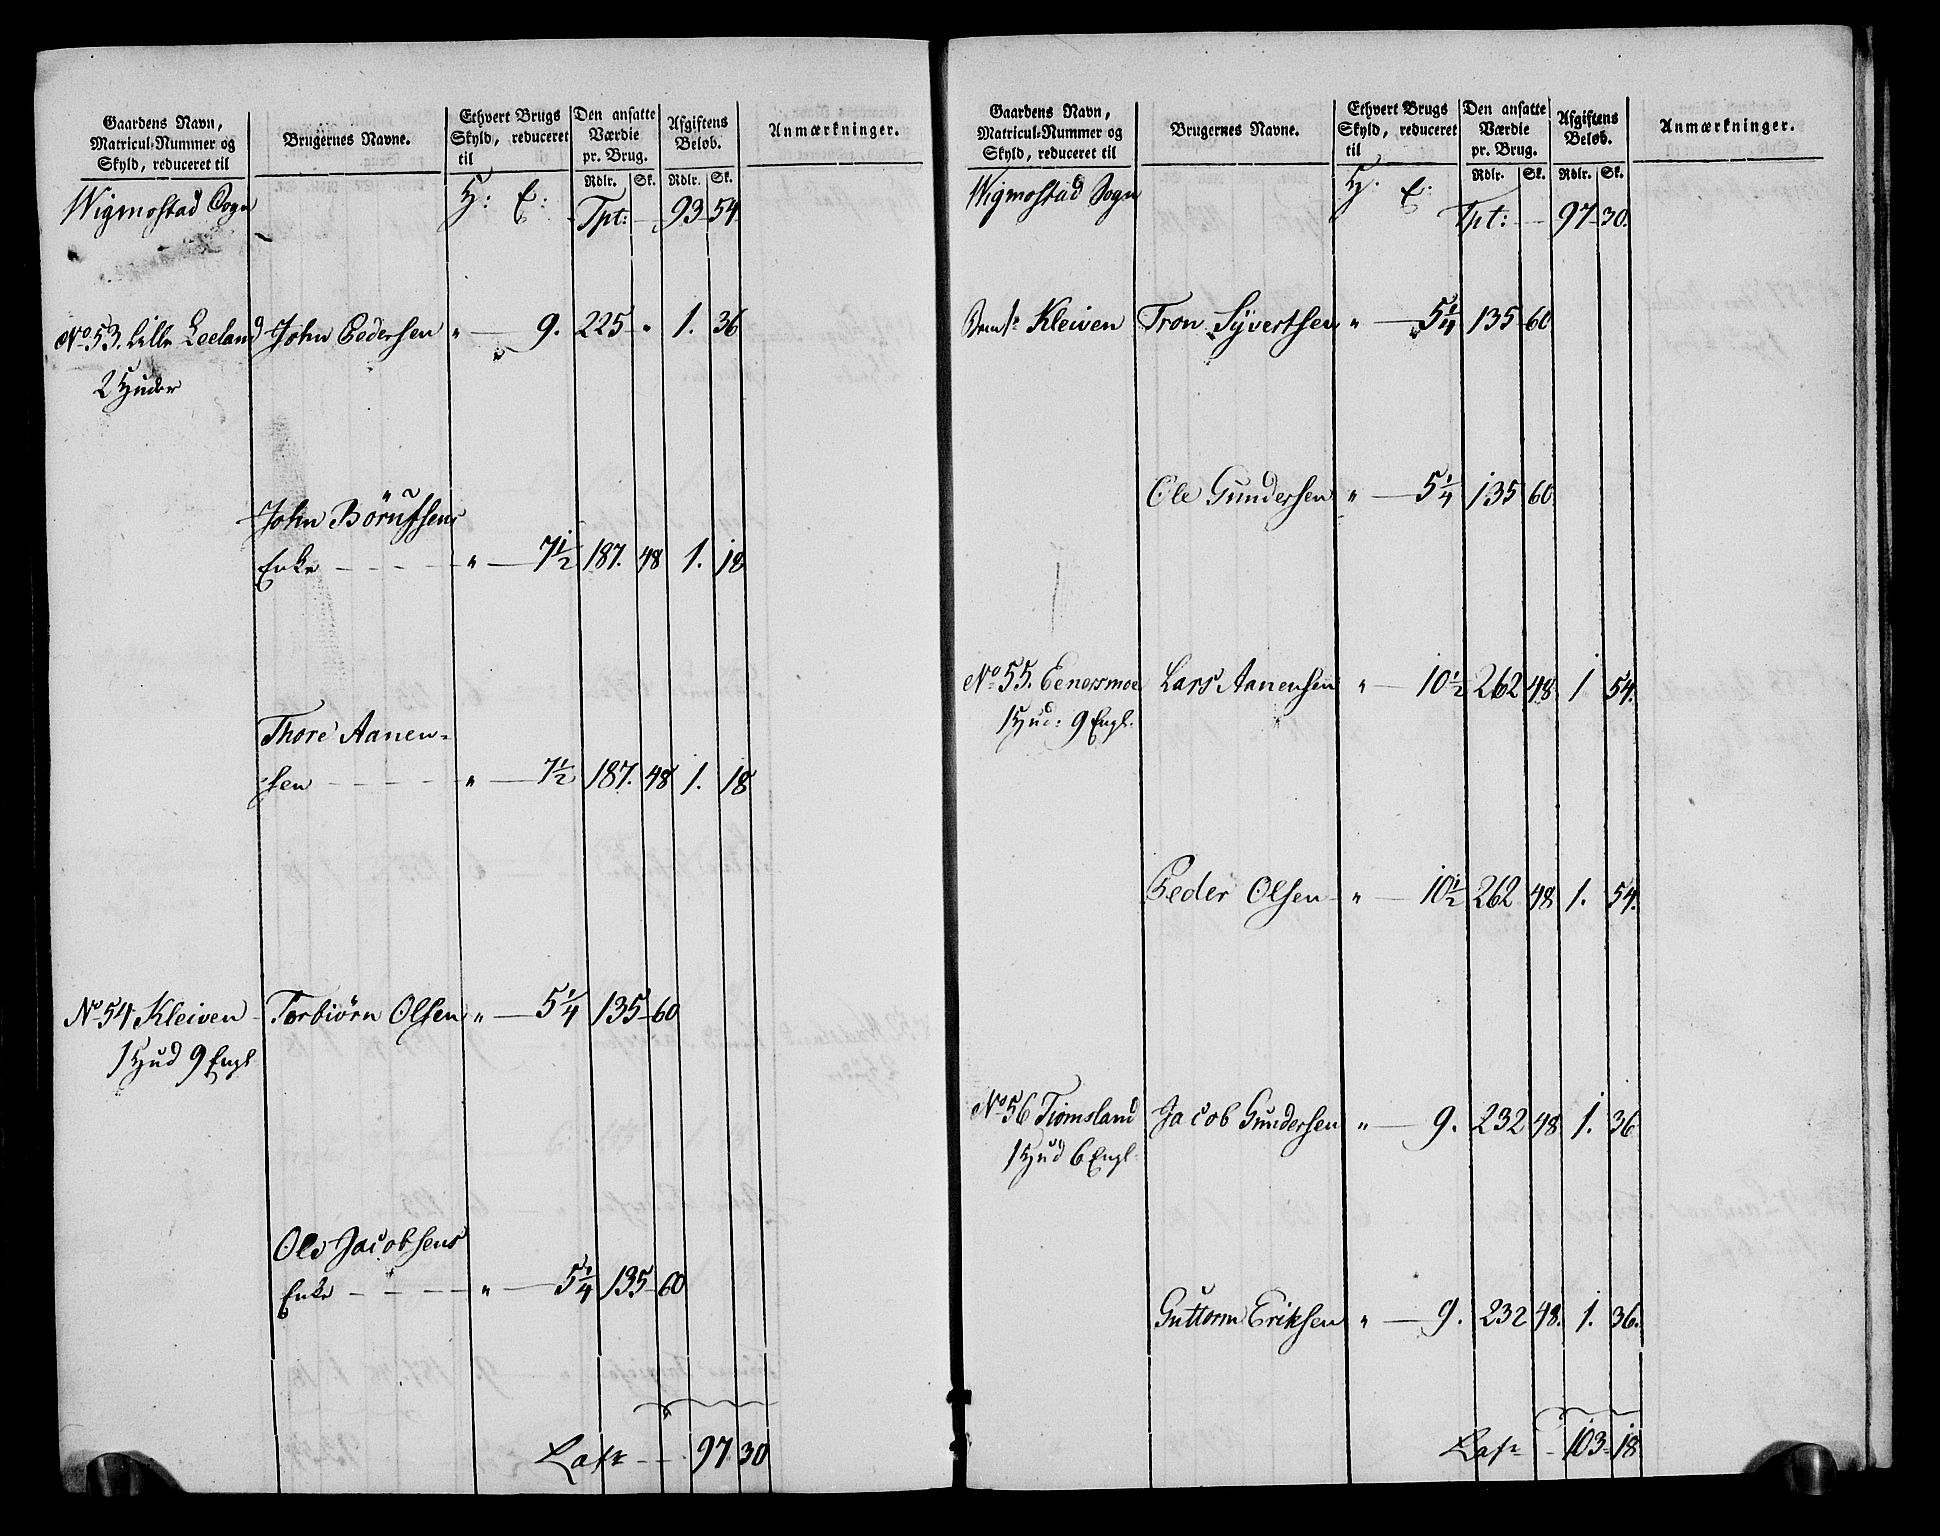 Gaardens Navn, Matricul-Nummer og Skyld, reduceret til | Brugernes Navne. | Ethvert Brugs Skyld, reduceret til | Den ansatte Værdie pr. Brug. | Afgiftens Beløb. | Anmærkninger.
Rdlr. Sk. Rdlr. Sk.
Wigmostad Sogn H: E: Tpt: — 93 54
No 53. Lille Leeland John Pedersen " — 9. 225 " 1. 36
2 Huder
John Börufsens
Enke — " — 7½ 187. 48 1. 18
Thore Aanen-
sen — " — 7½ 187. 48 1. 18
No 54 Kleiven Torbiörn Olsen " — 5¼ 135 60
1 Hud 9 Engl
Ole Jacobsens
Enke — " — 5¼ 135 60
Lats — 97 30
Gaardens Navn, Matricul-Nummer og Skyld, reduceret til | Brugernes Navne. | Ethvert Brugs Skyld, reduceret til | Den ansatte Værdie pr. Brug. | Afgiftens Beløb. | Anmærkninger.
Rdlr. Sk. Rdlr. Sk.
Wigmostad Sogn H: E: Tpt: — 97 30.
Kleiven Tron Syvertsen " — 5¼ 135 60
Ole Gundersen " — 5¼ 135 60
No 55. Eenersmoe Lars Aanensen " — 10½ 262 48 1 54.
1 Hud: 9 Engl.
Peder Olsen " — 10½ 262 48 1. 54.
No 56 Tiomsland Jacob Gundersen " — 9. 232 48 1. 36
1 Hud 6 Engl.
Guttorm Eriksen " — 9. 232 48. 1. 36.
Lats — 103 18